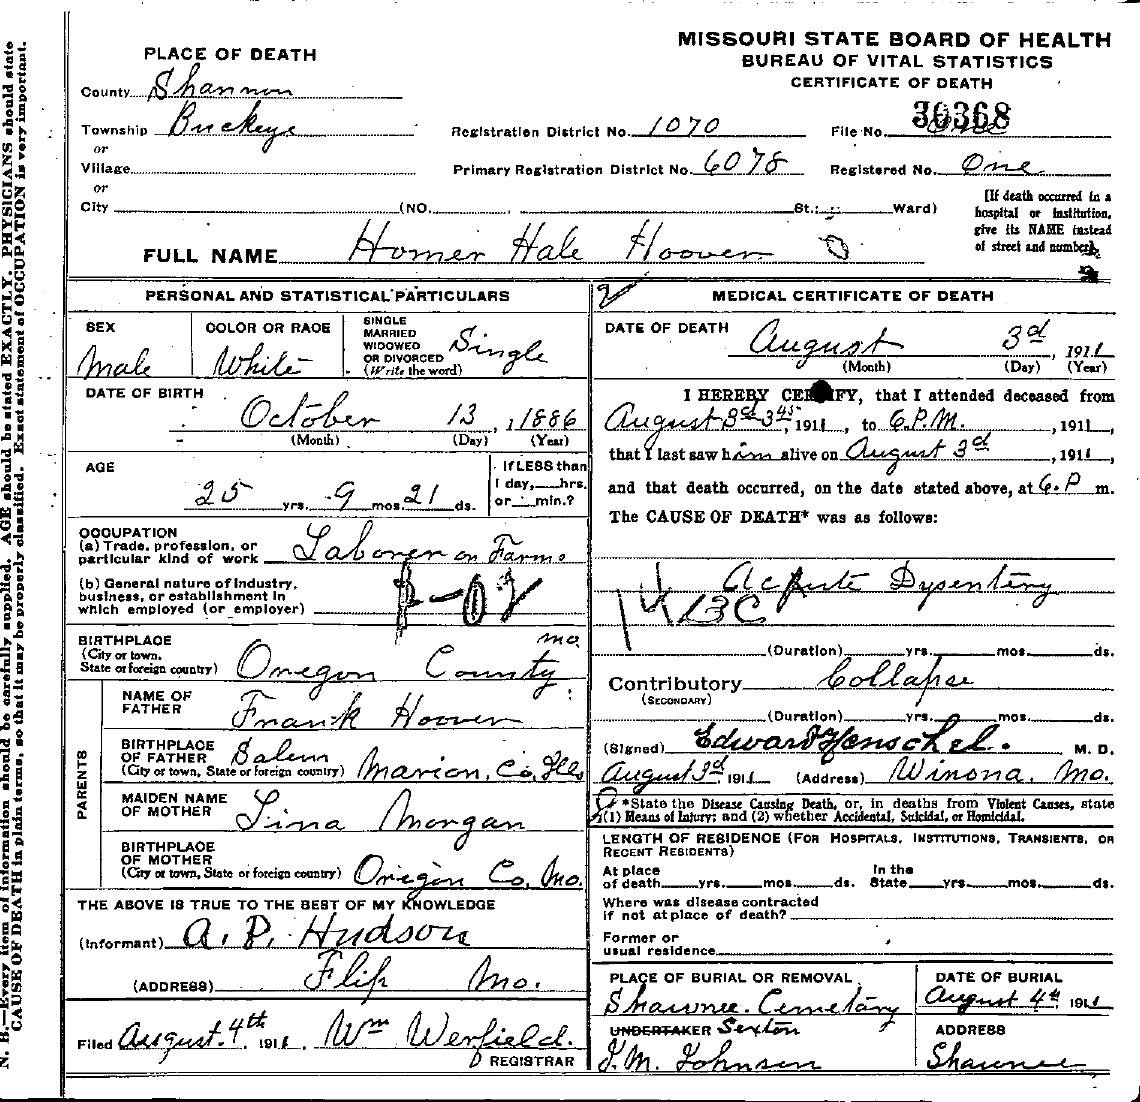 MISSOURI STATE BOARD OF HEALTH
BUREAU OF VITAL STATISTICS
CERTIFICATE OF DEATH
PLACE OF DEATH
County Shannon
Township Buckeye
or
Village
or
City (NO. , St.; Ward)
Registration District No. 1070
File No. 30368
Primary Registration District No. 6078
Registered No. One
[If death occurred in a
hospital or institution,
give its NAME instead
of street and number.]
FULL NAME Homer Hale Hoover
PERSONAL AND STATISTICAL PARTICULARS
SEX
Male
COLOR OR RACE
White
SINGLE
MARRIED
WIDOWED
OR DIVORCED
(Write the word)
Single
DATE OF BIRTH
October 13, 1886
(Month) (Day) (Year)
AGE
25 yrs. 9 mos. 21 ds.
If LESS than
1 day, hrs.
or min.?
OCCUPATION
(a) Trade, profession, or
particular kind of work Laborer on Farm
(b) General nature of industry,
business, or establishment in
which employed (or employer)
BIRTHPLACE
(City or town,
State or foreign country) Oregon County Mo.
PARENTS
NAME OF
FATHER Frank Hoover
BIRTHPLACE
OF FATHER
(City or town, State or foreign country) Salem Marion, Co, Ills
MAIDEN NAME
OF MOTHER Lina Morgan
BIRTHPLACE
OF MOTHER
(City or town, State or foreign country) Origin Co, Mo.
THE ABOVE IS TRUE TO THE BEST OF MY KNOWLEDGE
(Informant) A. P. Hudson
(ADDRESS) Flip Mo.
Filed August. 4th 1911 Wm Werfield.
REGISTRAR
MEDICAL CERTIFICATE OF DEATH
DATE OF DEATH
August 3d, 1911
(Month) (Day) (Year)
I HEREBY CERTIFY, that I attended deceased from
August 3d 345, 1911, to 6.P.M. , 1911,
that I last saw him alive on August 3d , 1911,
and that death occurred, on the date stated above, at 6.P m.
The CAUSE OF DEATH* was as follows:
Acpute Dysentery
14 13C
(Duration) yrs. mos. ds.
Contributory Collapse
(SECONDARY)
(Duration) yrs. mos. ds.
(Signed) Edward Henschel. M. D.
August 3d, 1911 (Address) Winona, Mo.
*State the Disease Causing Death, or, in deaths from Violent Causes, state
(1) Means of Injury; and (2) whether Accidental, Suicidal, or Homicidal.
LENGTH OF RESIDENCE (FOR HOSPITALS, INSTITUTIONS, TRANSIENTS, OR
RECENT RESIDENTS)
At place
of death yrs. mos. ds.
In the
State yrs. mos. ds.
Where was disease contracted
if not at place of death?
Former or
usual residence
PLACE OF BURIAL OR REMOVAL
Shawnee. Cemetary
DATE OF BURIAL
August 4th, 1911
UNDERTAKER Sexton
J. M. Johnson
ADDRESS
Shawnee
N. B.—Every item of information should be carefully supplied. AGE should be stated EXACTLY. PHYSICIANS should state
CAUSE OF DEATH in plain terms, so that it may be properly classified. Exact statement of OCCUPATION is very important.